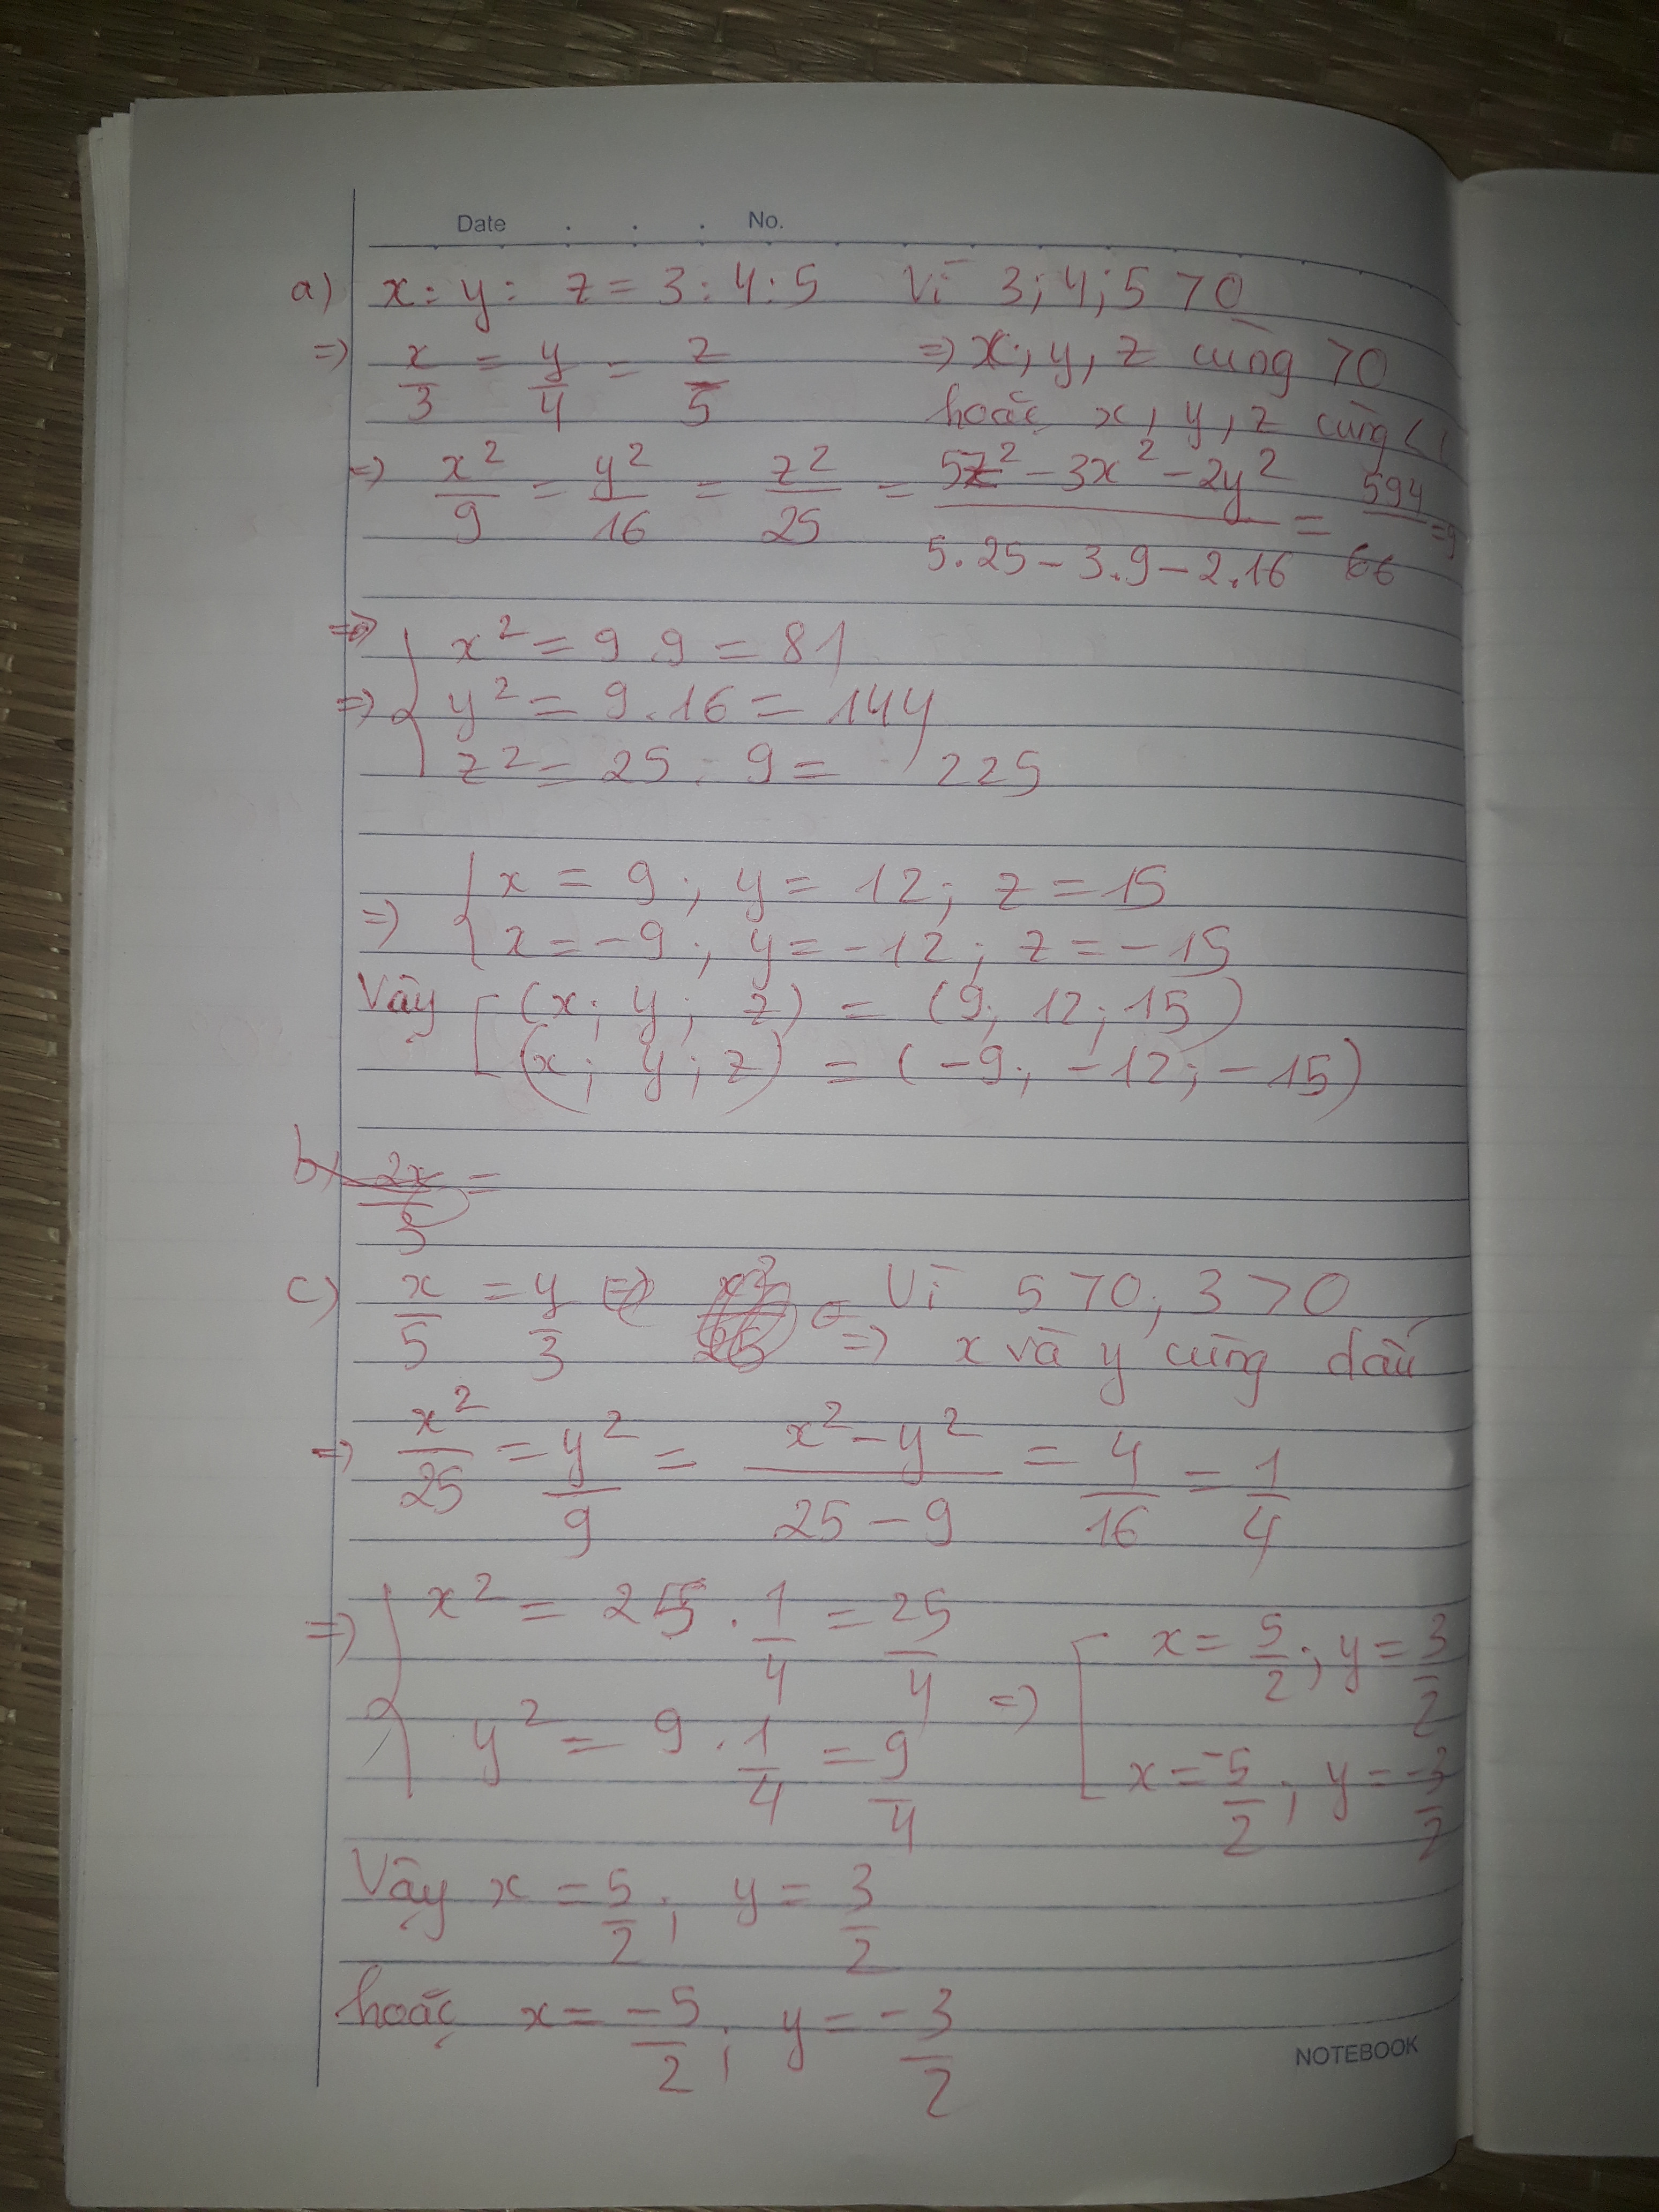 Date . . . No.
a) x : y : z = 3 : 4 : 5 Vì 3; 4; 5 > 0
=> x/3 = y/4 = z/5 => x; y, z cùng > 0
hoặc x, y, z cùng <
=> x²/9 = y²/16 = z²/25 = (5z² - 3x² - 2y²)/(5.25 - 3.9 - 2.16) = 594/66 = 9
=> x² = 9.9 = 81
=> y² = 9.16 = 144
z² = 25 . 9 = 225
=> x = 9; y = 12; z = 15
x = -9; y = -12; z = -15
Vậy (x; y; z) = (9; 12; 15)
(x; y; z) = (-9; -12; -15)
b) 2x/3 =
c) x/5 = y/3 => Vì 5 > 0; 3 > 0
=> x và y cùng dấu
=> x²/25 = y²/9 = (x² - y²)/(25 - 9) = 4/16 = 1/4
=> x² = 25 . 1/4 = 25/4
y² = 9 . 1/4 = 9/4 => x = 5/2; y = 3/2
x = -5/2; y = -3/2
Vậy x = 5/2; y = 3/2
hoặc x = -5/2; y = -3/2
NOTEBOOK